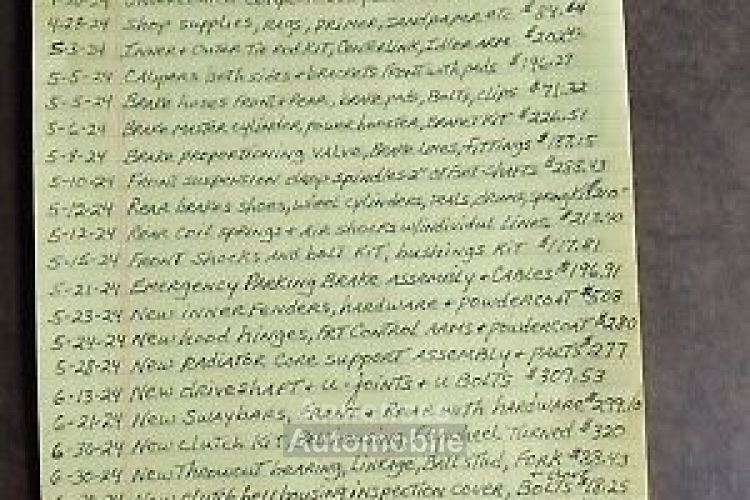 4-28-24 Shop supplies, Rags, primer, sandpaper etc $84.64
5-3-24 Inner + Outer Tie Rod Kit, Centerlink, Idler arm
5-5-24 Calypers both sides + brackets front with pads $196.27
5-5-24 Brake hoses Front + Rear, brake pads, Bolts, clips $71.32
5-6-24 Brake master cylinder, power booster, Bracket Kit $226.51
5-8-24 Brake proportioning valve, Brake Lines, fittings $187.15
5-10-24 Front suspension drop spindles 2" offset shafts $288.43
5-12-24 Rear brakes shoes, wheel cylinders, seals, drums, spring Kit
5-12-24 Rear coil springs + Air shocks w/individual Lines
5-15-24 Front Shocks and bolt Kit, bushings Kit $117.81
5-21-24 Emergency Parking Brake Assembly + Cables $196.91
5-23-24 New inner Fenders, hardware + powdercoat $508
5-24-24 New hood hinges, FRT Control Arms + powdercoat $280
5-28-24 New Radiator Core support Assembly + parts $277
6-13-24 New driveshaft + U-joints + U Bolts $309.53
6-21-24 New Swaybars, Front + Rear with hardware
6-30-24 New Clutch Kit, Flywheel Turned $320
Automobile
6-30-24 New Throwout bearing, Linkage, Ball stud, Fork $23.43
New clutch bell housing inspection cover, Bolts $18.25